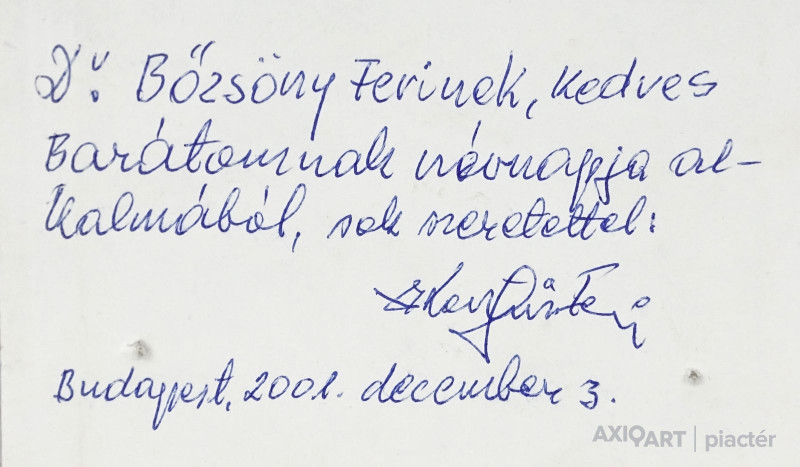 Dr. Bőzsöny Ferinek, kedves
Barátomnak névnapja al-
kalmából, sok szeretettel:
Budapest, 2001. december 3.
AXIOART | piactér